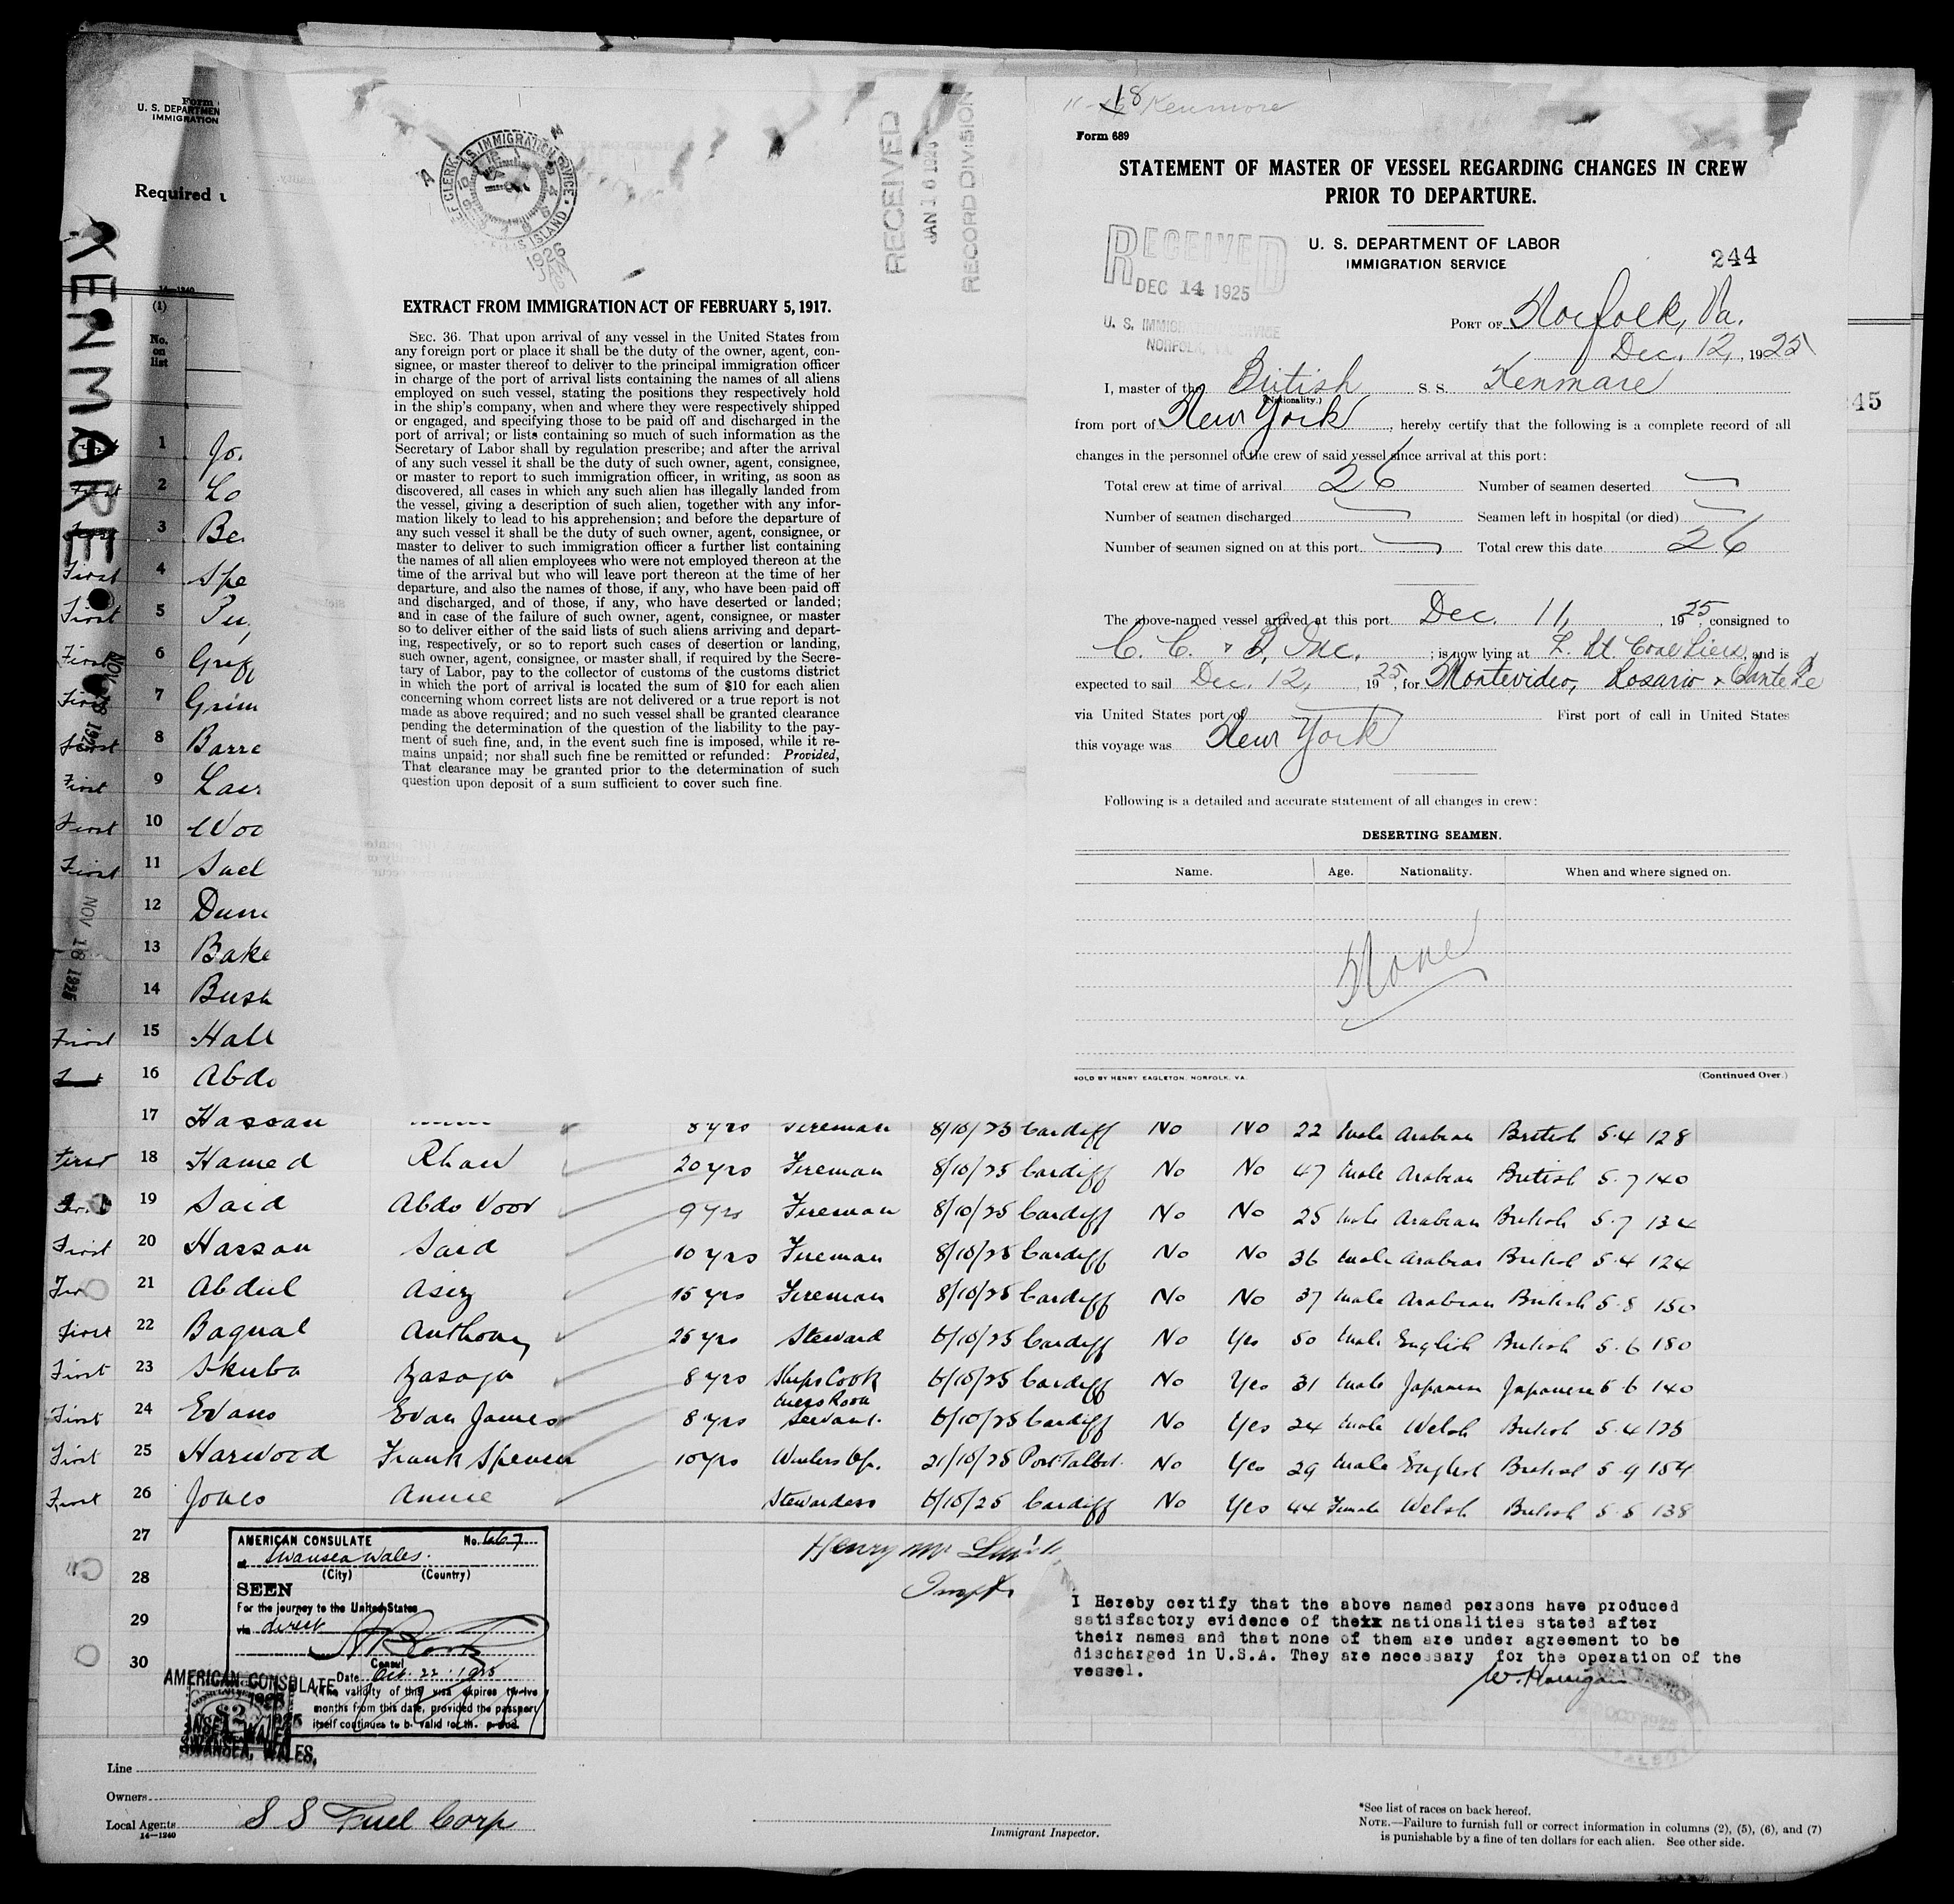 Form
U. S. DEPARTMEN
IMMIGRATION
Required
14—1240
(1)
No.
on
list
KENMARE
1 Jo
2 Lo
3 Be
First 4 Spe
First 5
First 6 Grif
First 7 Grim
First 8 Barre
First 9
First 10 Woo
First 11
12
13 Bake
14 Bush
First 15 Hall
16 Abdo
NOV 18 1925
NOV 18 1925
U.S. IMMIGRATION SERVICE
1926
JAN
RECEIVED
JAN 16 1926
RECORD DIVISION
EXTRACT FROM IMMIGRATION ACT OF FEBRUARY 5, 1917.
SEC. 36. That upon arrival of any vessel in the United States from
any foreign port or place it shall be the duty of the owner, agent, con-
signee, or master thereof to deliver to the principal immigration officer
in charge of the port of arrival lists containing the names of all aliens
employed on such vessel, stating the positions they respectively hold
in the ship's company, when and where they were respectively shipped
or engaged, and specifying those to be paid off and discharged in the
port of arrival; or lists containing so much of such information as the
Secretary of Labor shall by regulation prescribe; and after the arrival
of any such vessel it shall be the duty of such owner, agent, consignee,
or master to report to such immigration officer, in writing, as soon as
discovered, all cases in which any such alien has illegally landed from
the vessel, giving a description of such alien, together with any infor-
mation likely to lead to his apprehension; and before the departure of
any such vessel it shall be the duty of such owner, agent, consignee, or
master to deliver to such immigration officer a further list containing
the names of all alien employees who were not employed thereon at the
time of the arrival but who will leave port thereon at the time of her
departure, and also the names of those, if any, who have been paid off
and discharged, and of those, if any, who have deserted or landed;
and in case of the failure of such owner, agent, consignee, or master
so to deliver either of the said lists of such aliens arriving and depart-
ing, respectively, or so to report such cases of desertion or landing,
such owner, agent, consignee, or master shall, if required by the Secre-
tary of Labor, pay to the collector of customs of the customs district
in which the port of arrival is located the sum of $10 for each alien
concerning whom correct lists are not delivered or a true report is not
made as above required; and no such vessel shall be granted clearance
pending the determination of the question of the liability to the pay-
ment of such fine, and, in the event such fine is imposed, while it re-
mains unpaid; nor shall such fine be remitted or refunded: Provided,
That clearance may be granted prior to the determination of such
question upon deposit of a sum sufficient to cover such fine.
18 Kenmore
Form 689
STATEMENT OF MASTER OF VESSEL REGARDING CHANGES IN CREW
PRIOR TO DEPARTURE.
RECEIVED
DEC 14 1925
U. S. DEPARTMENT OF LABOR
IMMIGRATION SERVICE
244
PORT OF Norfolk, Va.
Dec. 12, 1925
I, master of the British S. S. Kenmare
(Nationality.)
from port of New York, hereby certify that the following is a complete record of all
changes in the personnel of the crew of said vessel since arrival at this port:
Total crew at time of arrival 26 Number of seamen deserted —
Number of seamen discharged — Seamen left in hospital (or died) —
Number of seamen signed on at this port — Total crew this date 26
The above-named vessel arrived at this port Dec. 11, 1925, consigned to
C. C. & D, Inc. ; is now lying at L. Pt Coal Piers, and is
expected to sail Dec. 12, 1925, for Montevideo, Rosario & Sante Fe
via United States port of — First port of call in United States
this voyage was New York
Following is a detailed and accurate statement of all changes in crew:
DESERTING SEAMEN.
Name. Age. Nationality. When and where signed on.
None
SOLD BY HENRY EAGLETON, NORFOLK, VA. (Continued Over.)
45
17 Hassan 8 yrs Fireman 8/10/25 Cardiff No No 22 Male Arabian British 5.4 128
First 18 Hamed Khan 20 yrs Fireman 8/10/25 Cardiff No No 47 Male Arabian British 5.7 140
19 Said Abdo Noor 9 yrs Fireman 8/10/25 Cardiff No No 25 Male Arabian British 5.7 134
First 20 Hassan Said 10 yrs Fireman 8/10/25 Cardiff No No 36 Male Arabian British 5.4 124
21 Abdul Asiz 15 yrs Fireman 8/10/25 Cardiff No No 37 Male Arabian British 5.8 150
First 22 Bagual Anthony 25 yrs Steward 6/10/25 Cardiff No Yes 50 Male English British 5.6 180
First 23 Skuba 8 yrs Ships Cook 6/10/25 Cardiff No Yes 31 Male Japanese Japanese 5 6 140
First 24 Evans Evan James 8 yrs Mess Room Servant. 6/10/25 Cardiff No Yes 24 Male Welsh British 5.4 125
First 25 Harwood Frank Spencer 10 yrs Wireless Op. 21/10/25 Port Talbot. No Yes 29 Male English British 5 9 154
First 26 Jones Annie Stewardess 6/10/25 Cardiff No Yes 44 Female Welsh British 5.5 138
27
28
29
30
AMERICAN CONSULATE No. 667
at Swansea Wales.
(City) (Country)
SEEN
For the journey to the United States
via direct
Consul
Date Oct. 22. 1925
(The validity of this visa expires twelve
months from this date, provided the passport
itself continues to be valid for th. period.
AMERICAN CONSULATE
1925
$2
SWANSEA, WALES.
I Hereby certify that the above named persons have produced
satisfactory evidence of theix nationalities stated after
their names and that none of them are under agreement to be
discharged in U.S.A. They are necessary for the operation of the
vessel.
Line
Owners
Local Agents S S Fuel Corp
14—1240
Immigrant Inspector.
*See list of races on back hereof.
NOTE.—Failure to furnish full or correct information in columns (2), (5), (6), and (7)
is punishable by a fine of ten dollars for each alien. See other side.